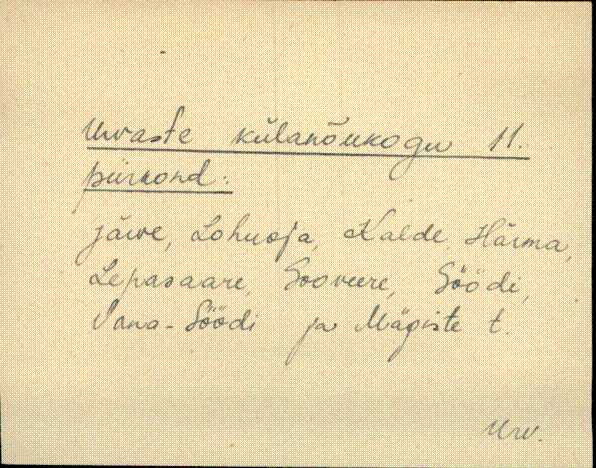 Urvaste külanõukogu 11.
piirkond:
Järve, Lohuoja, Kalde, Härma,
Lepasaare, Sooveere, Söödi,
Vana-Söödi ja Mägiste t.
Urv.